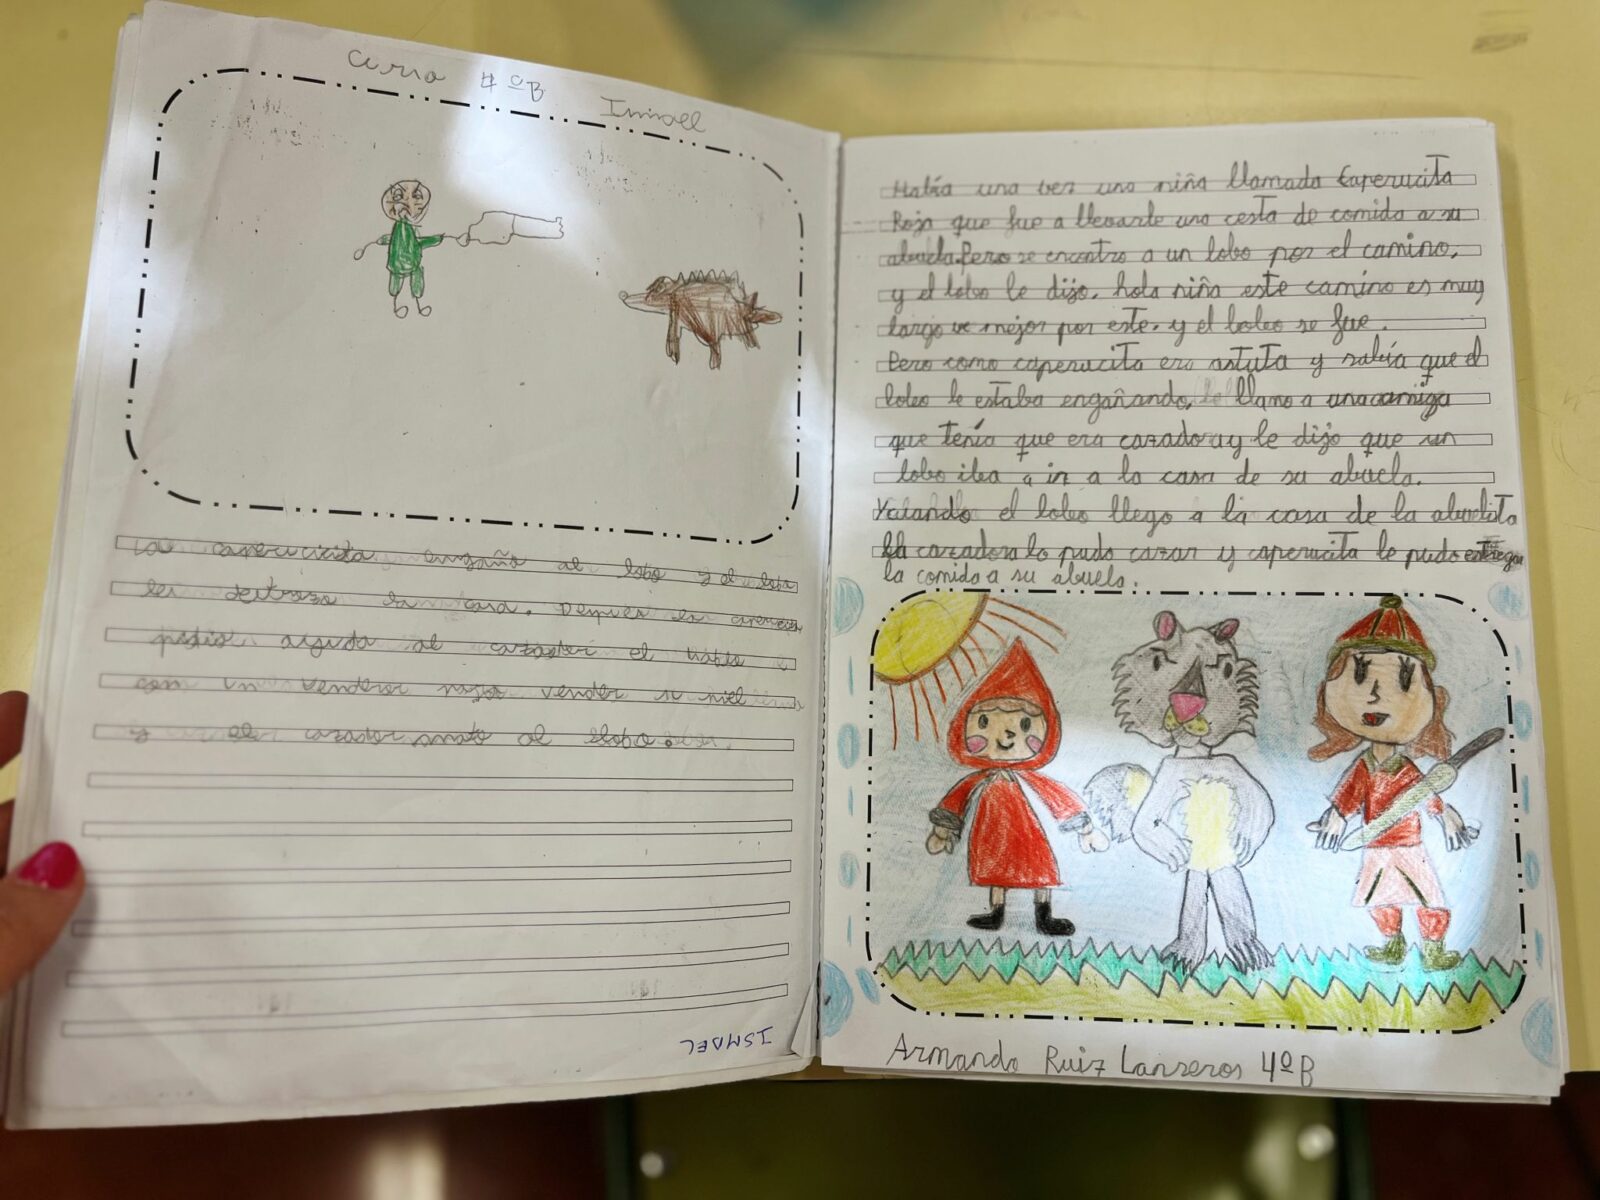 Curso 4ºB Ismael
La caperucicita engaño al lobo y el lobo
les destrozo la casa. Despues la
pidio ayuda al cazador el hablo
con un vendedor para vender su piel
y el cazador mato al lobo.
ISMAEL
Había una vez una niña llamada Caperucita
Roja que fue a llevarle una cesta de comida a su
abuela. Pero se encontro a un lobo por el camino,
y el lobo le dijo. hola niña este camino es muy
largo ve mejor por este. y el lobo se fue.
Pero como caperucita era astuta y sabía que el
lobo le estaba engañando, llamo a una amiga
que tenía que era cazadora y le dijo que un
lobo iba a ir a la casa de su abuela.
Y cuando el lobo llego a la casa de la abuelita
la cazadora lo pudo cazar y caperucita le pudo entregar
la comida a su abuela.
Armando Ruiz Lanseros 4ºB